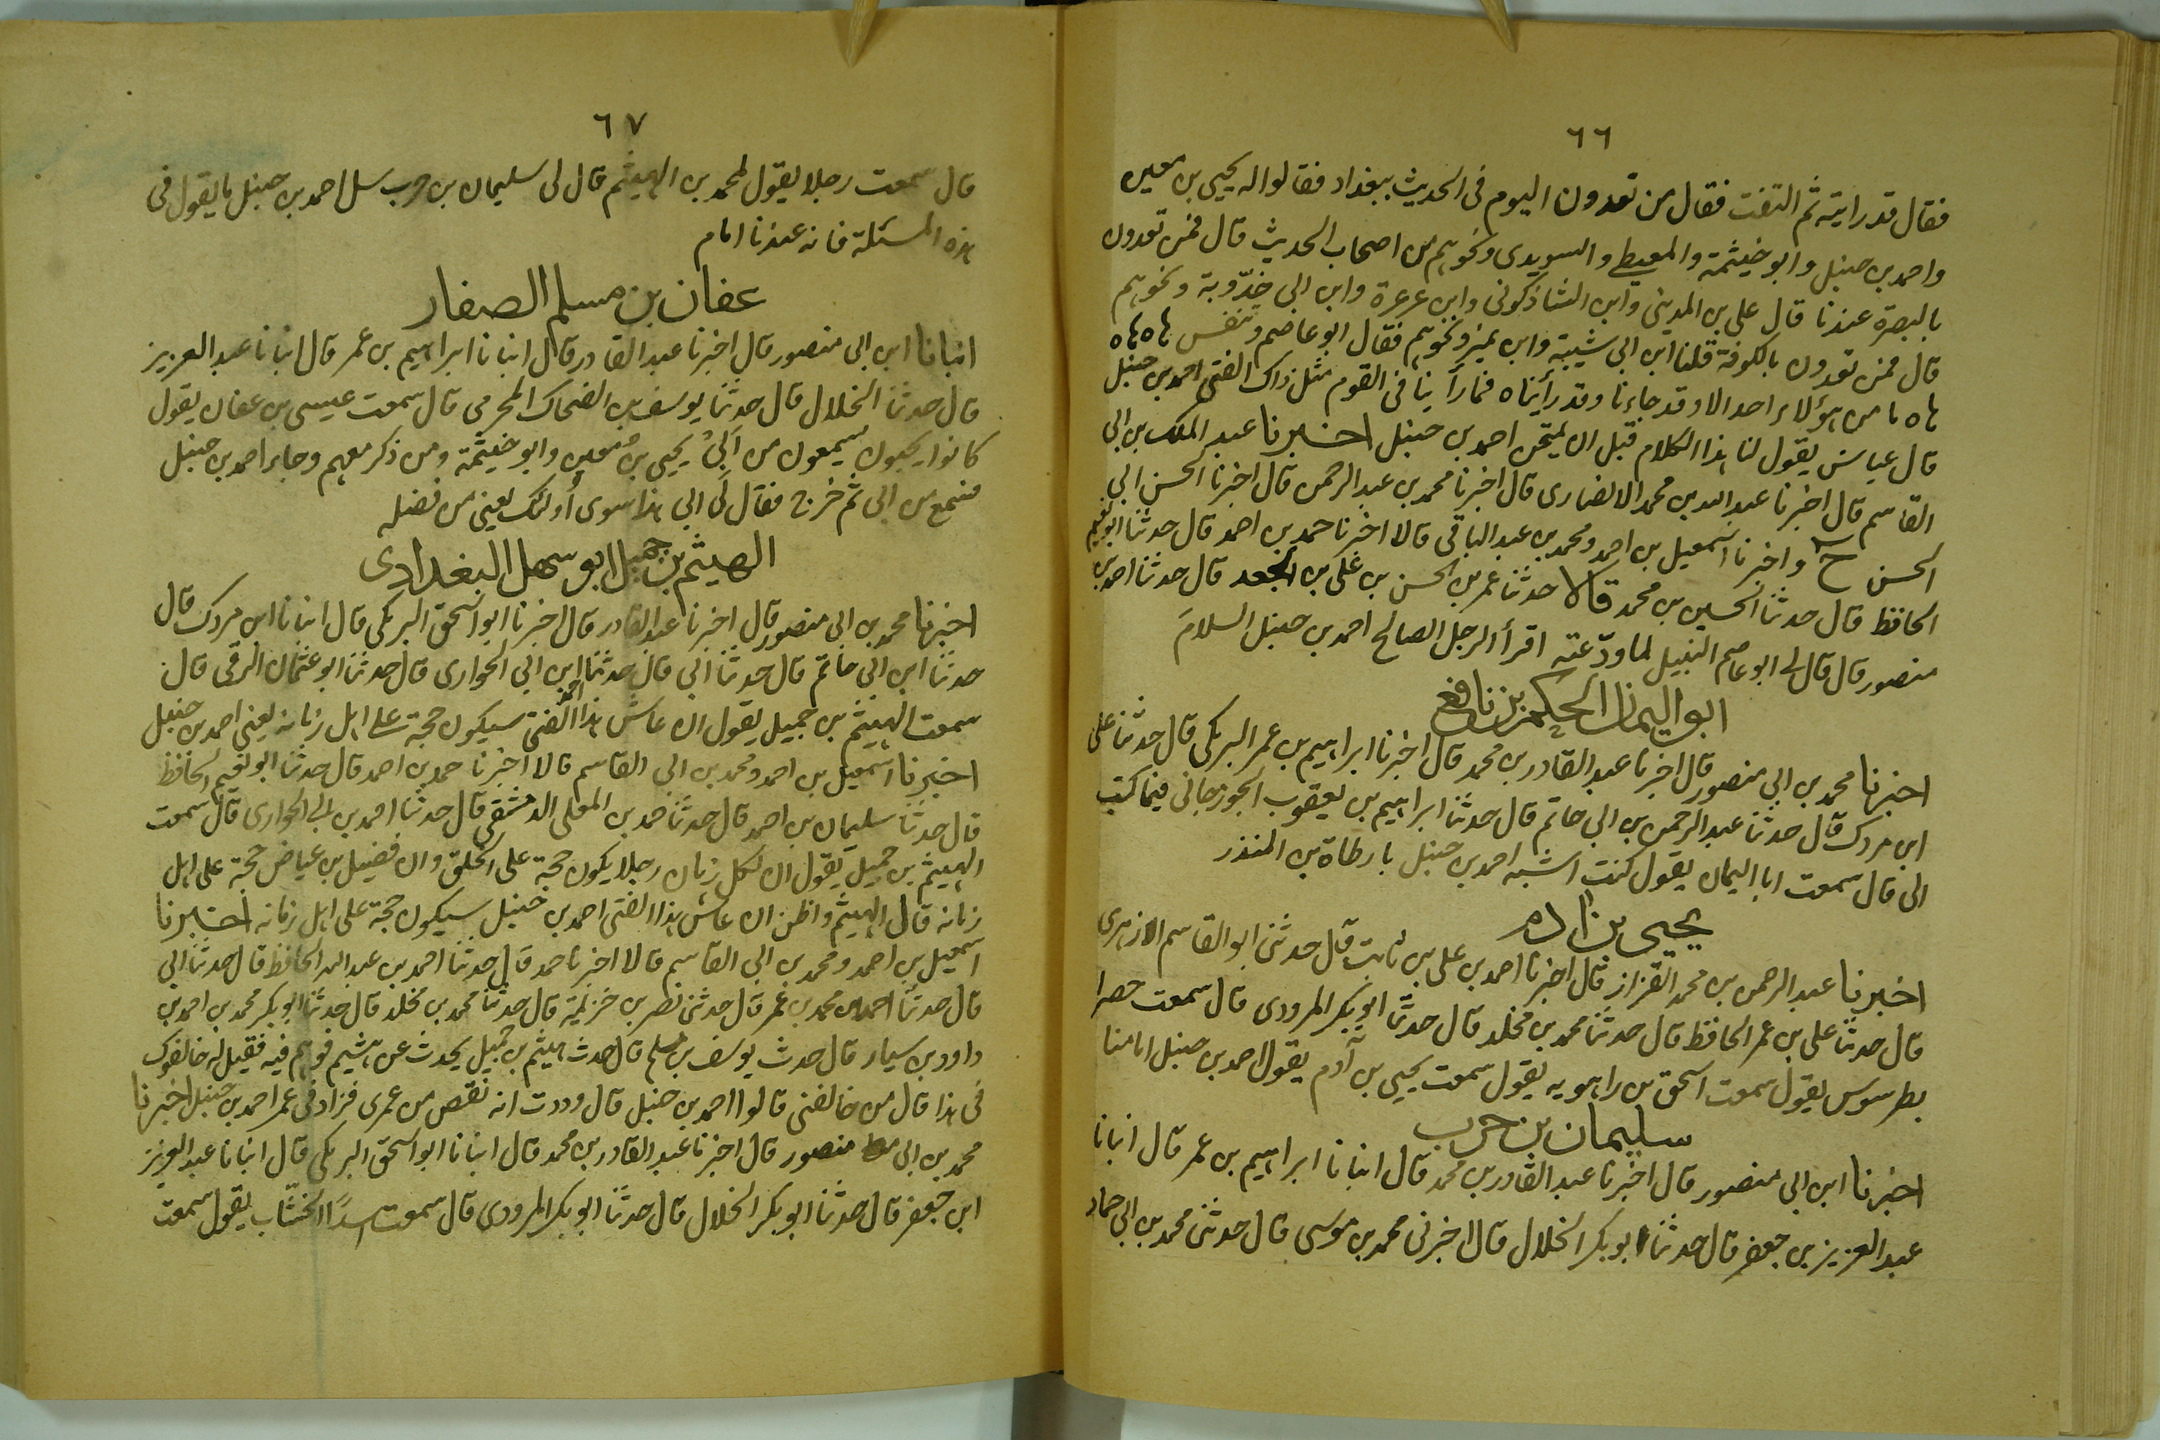 ٦٦
فقال قد رايته ثم التفت فقال من تعدون اليوم فى الحديث ببغداد فقالوا له يحيى بن معين
واحمد بن حنبل وابو خيثمة والمعيطى والسويدى ونحوهم من اصحاب الحديث قال فمن تعدون
بالبصرة عندنا قال على بن المدينى وابن الشاذكونى وابن عرعرة وابن ابى خدّوية ونحوهم
قال فمن تعدون بالكوفة قلنا ابن ابى شيبة وابن نمير ونحوهم فقال ابو عاصم وتنفس هاه هاه
هاه ما من هؤلاء احد الا وقد جاءنا وقد رأيناه فما رأينا فى القوم مثل ذاك الفتى احمد بن حنبل
قال عباس يقول لنا هذا الكلام قبل ان يمتحن احمد بن حنبل اخبرنا عبد الملك بن ابى
القاسم قال اخبرنا عبد الله بن محمد الانصارى قال اخبرنا محمد بن عبد الرحمن قال اخبرنا الحسن ابى
الحسن ح واخبرنا اسمعيل بن احمد ومحمد بن عبد الباقى قالا اخبرنا حمد بن احمد قال حدثنا ابو نعيم
الحافظ قال حدثنا الحسين بن محمد قالا حدثنا عمر بن الحسن بن على بن الجعد قال حدثنا احمد بن
منصور قال قال لى ابو عاصم النبيل لما ودّعته اقرأ الرجل الصالح احمد بن حنبل السلامَ
ابو اليمان الحكم بن نافع
اخبرنا محمد بن ابى منصور قال اخبرنا عبد القادر بن محمد قال اخبرنا ابراهيم بن عمر البركى قال حدثنا على
ابن مردك قال حدثنا عبد الرحمن بن ابى حاتم قال حدثنا ابراهيم بن يعقوب الجوزجانى فيما كتب
الى قال سمعت ابا اليمان يقول كنت اشبه احمد بن حنبل بارطاة بن المنذر
يحيى بن ادم
اخبرنا عبد الرحمن بن محمد القزاز قال اخبرنا احمد بن على بن ثابت قال حدثنى ابو القاسم الازهرى
قال حدثنا على بن عمر الحافظ قال حدثنا محمد بن مخلد قال حدثنا ابو بكر المرودى قال سمعت حصرا
بطرسوس يقول سمعت اسحق بن راهويه يقول سمعت يحيى بن آدم يقول احمد بن حنبل امامنا
سليمان بن حرب
اخبرنا ابن ابى منصور قال اخبرنا عبد القادر بن محمد قال انبانا ابراهيم بن عمر قال انبانا
عبد العزيز بن جعفر قال حدثنا ابو بكر الخلال قال اخبرنى محمد بن موسى قال حدثنى محمد بن ابى حماد
٦٧
قال سمعت رجلا يقول لمحمد بن الهيثم قال لى سليمان بن حرب سل احمد بن حنبل ما يقول فى
هذه المسئلة فانه عندنا امام
عفان بن مسلم الصفار
انبانا ابن ابى منصور قال اخبرنا عبد القادر قال انبانا ابراهيم بن عمر قال انبانا عبد العزيز
قال حدثنا الخلال قال حدثنا يوسف بن الضحاك المخرمى قال سمعت عيسى بن عفان يقول
كانوا يجيون يسمعون من اَبِىْ يحيى بن معين وابو خيثمة ومن ذكر معهم وجاء احمد بن حنبل
فسمع من ابى ثم خرج فقال لى ابى هذا سوى أولئك يعنى من فضله
الهيثم بن جميل ابو سهل البغدادى
اخبرنا محمد بن ابى منصور قال اخبرنا عبد القادر قال اخبرنا ابو اسحق البركى قال انبانا ابن مردك قال
حدثنا ابن ابى حاتم قال حدثنا ابى قال حدثنا احمد ابن ابى الحوارى قال حدثنا ابو عثمان الرقى قال
سمعت الهيثم بن جميل يقول ان عاش هذا الفتى سيكون حجة على اهل زمانه يعنى احمد بن حنبل
اخبرنا اسمعيل بن احمد ومحمد بن ابى القاسم قالا اخبرنا حمد بن احمد قال حدثنا ابو نعيم الحافظ
قال حدثنا سليمان بن احمد قال حدثنا محمد بن المعلى الدمشقى قال حدثنا احمد بن ابى الحوارى قال سمعت
الهيثم بن جميل يقول ان لكل زمان رجلا يكون حجة على الخلق وان فضيل بن عياض حجة على اهل
زمانه قال الهيثم واظن ان عاش هذا الفتى احمد بن حنبل سيكون حجة على اهل زمانه اخبرنا
اسمعيل بن احمد ومحمد بن ابى القاسم قالا اخبرنا حمد قال حدثنا احمد بن عبد الله الحافظ قال حدثنا ابى
قال حدثنا احمد بن محمد بن عمر قال حدثنى نصر بن خزيمة قال حدثنا محمد بن مخلد قال حدثنا ابو بكر محمد بن احمد بن
داود بن سيار قال حدث يوسف بن مسلم قال حدث هيثم بن جميل يحدث عن هشيم فوهم فيه فقيل له خالفوك
فى هذا قال من خالفنى قالوا احمد بن حنبل قال وددت انه نقص من عمرى فزاد فى عمر احمد بن حنبل اخبرنا
محمد بن ابى منصور قال اخبرنا عبد القادر بن محمد قال انبانا ابو اسحق البركى قال انبانا عبد العزيز
ابن جعفر قال حدثنا ابو بكر الخلال قال حدثنا ابو بكر المرودى قال سمعت اسدًا الخشّاب يقول سمعت